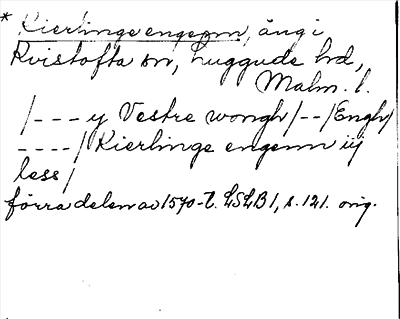 * Kierlinge engenn, äng i
Kvistofta sn, Luggude hd,
Malm. l.
/--- y Vestre wongh/--/Engh/
----/Kierlinge engenn iij
less/
förra delen av 1570-t. LSLB 1, s. 121. orig.